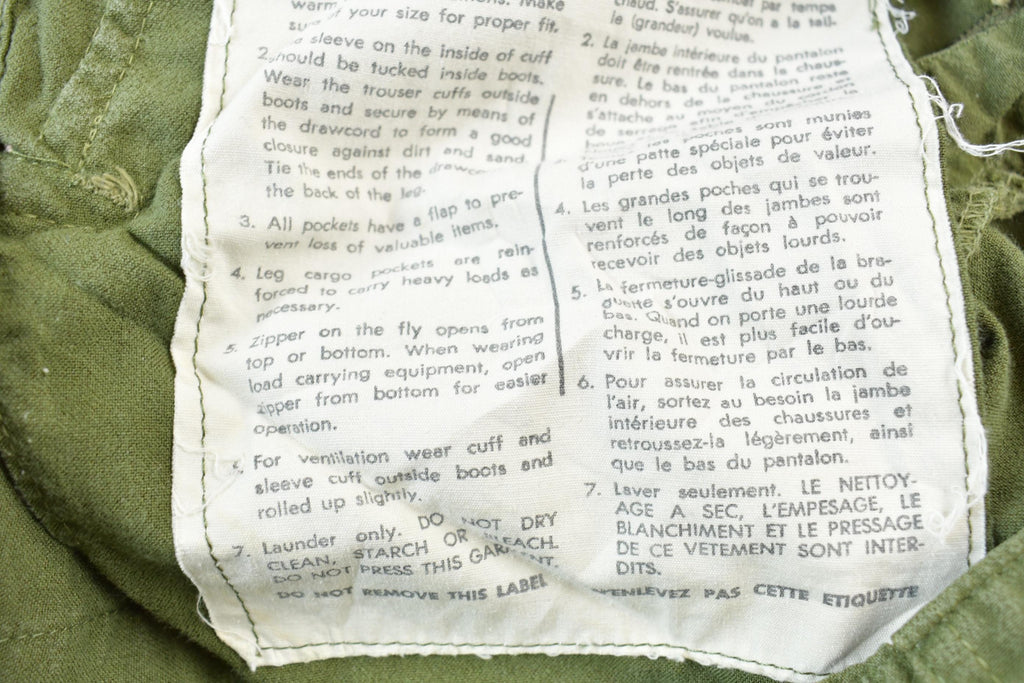 warm
Make
your size for proper fit.
sleeve on the inside of cuff
2. should be tucked inside boots.
Wear the trouser cuffs outside
boots and secure by means of
the drawcord to form a good
closure against dirt and sand.
Tie the ends of the
the back of the leg.
3. All pockets have a flap to pre-
vent loss of valuable items.
4. Leg cargo pockets are rein-
forced to carry heavy loads as
necessary.
5. Zipper on the fly opens from
top or bottom. When wearing
load carrying equipment, open
zipper from bottom for easier
operation.
For ventilation wear cuff and
sleeve cuff outside boots and
rolled up slightly.
7. Launder only. DO NOT DRY
CLEAN, STARCH OR BLEACH.
DO NOT PRESS THIS GARMENT.
DO NOT REMOVE THIS LABEL
par temps
chaud. S'assurer qu'on a la tail-
le (grandeur) voulue.
2. La jambe intérieure du pantalon
doit être rentrée dans la chaus-
sure. Le bas du pantalon reste
en dehors de la chaussure et
s'attache au moyen du
de
poches sont munies
d'une patte spéciale pour éviter
la perte des objets de valeur.
4. Les grandes poches qui se trou-
vent le long des jambes sont
renforcés de façon à pouvoir
recevoir des objets lourds.
5. La fermeture-glissade de la bra-
guette s'ouvre du haut ou du
bas. Quand on porte une lourde
charge, il est plus facile d'ou-
vrir la fermeture par le bas.
6. Pour assurer la circulation de
l'air, sortez au besoin la jambe
intérieure des chaussures et
retroussez-la légèrement, ainsi
que le bas du pantalon.
7. Laver seulement. LE NETTOY-
AGE A SEC, L'EMPESAGE, LE
BLANCHIMENT ET LE PRESSAGE
DE CE VETEMENT SONT INTER-
DITS.
N'ENLEVEZ PAS CETTE ETIQUETTE